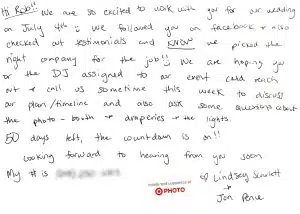 Hi Rob!! We are so excited to work with you for our wedding
on July 4th!! We followed you on facebook + also
checked out testimonials and KNEW we picked the
right company for the job!! We are hoping you
or the DJ assigned to our event could reach
out + call us sometime this week to discuss
our plan/timeline and also ask some questions about
the photo-booth + draperies + the lights.
50 days left, the countdown is on!!
Looking forward to hearing from you soon
My # is
Lindsey Scarlett
+
Jon
PHOTO